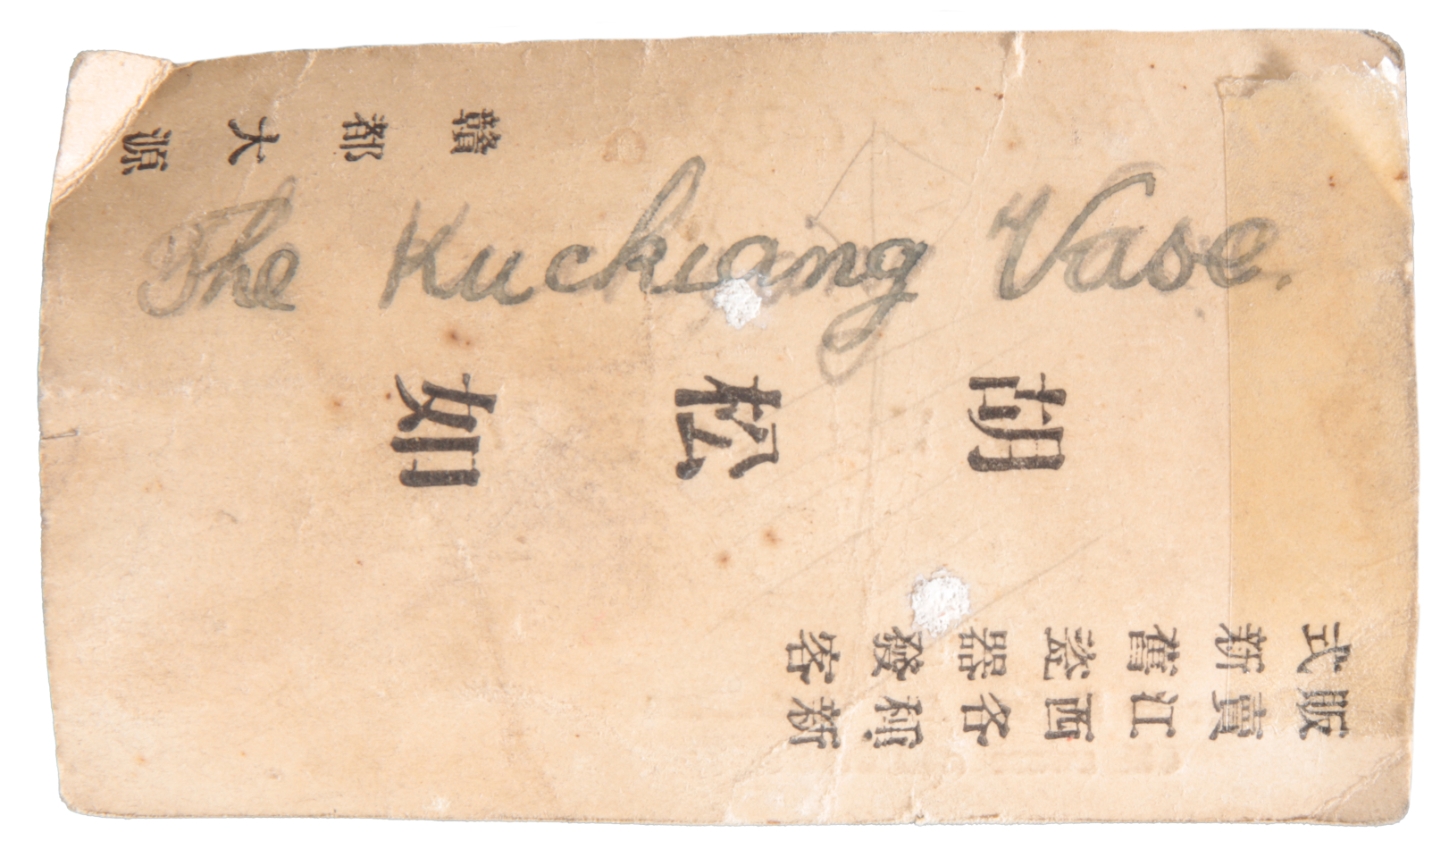 The Kuckiang Vase.
販賣江西各種新
式新舊瓷器發客
胡松如
贛都大源